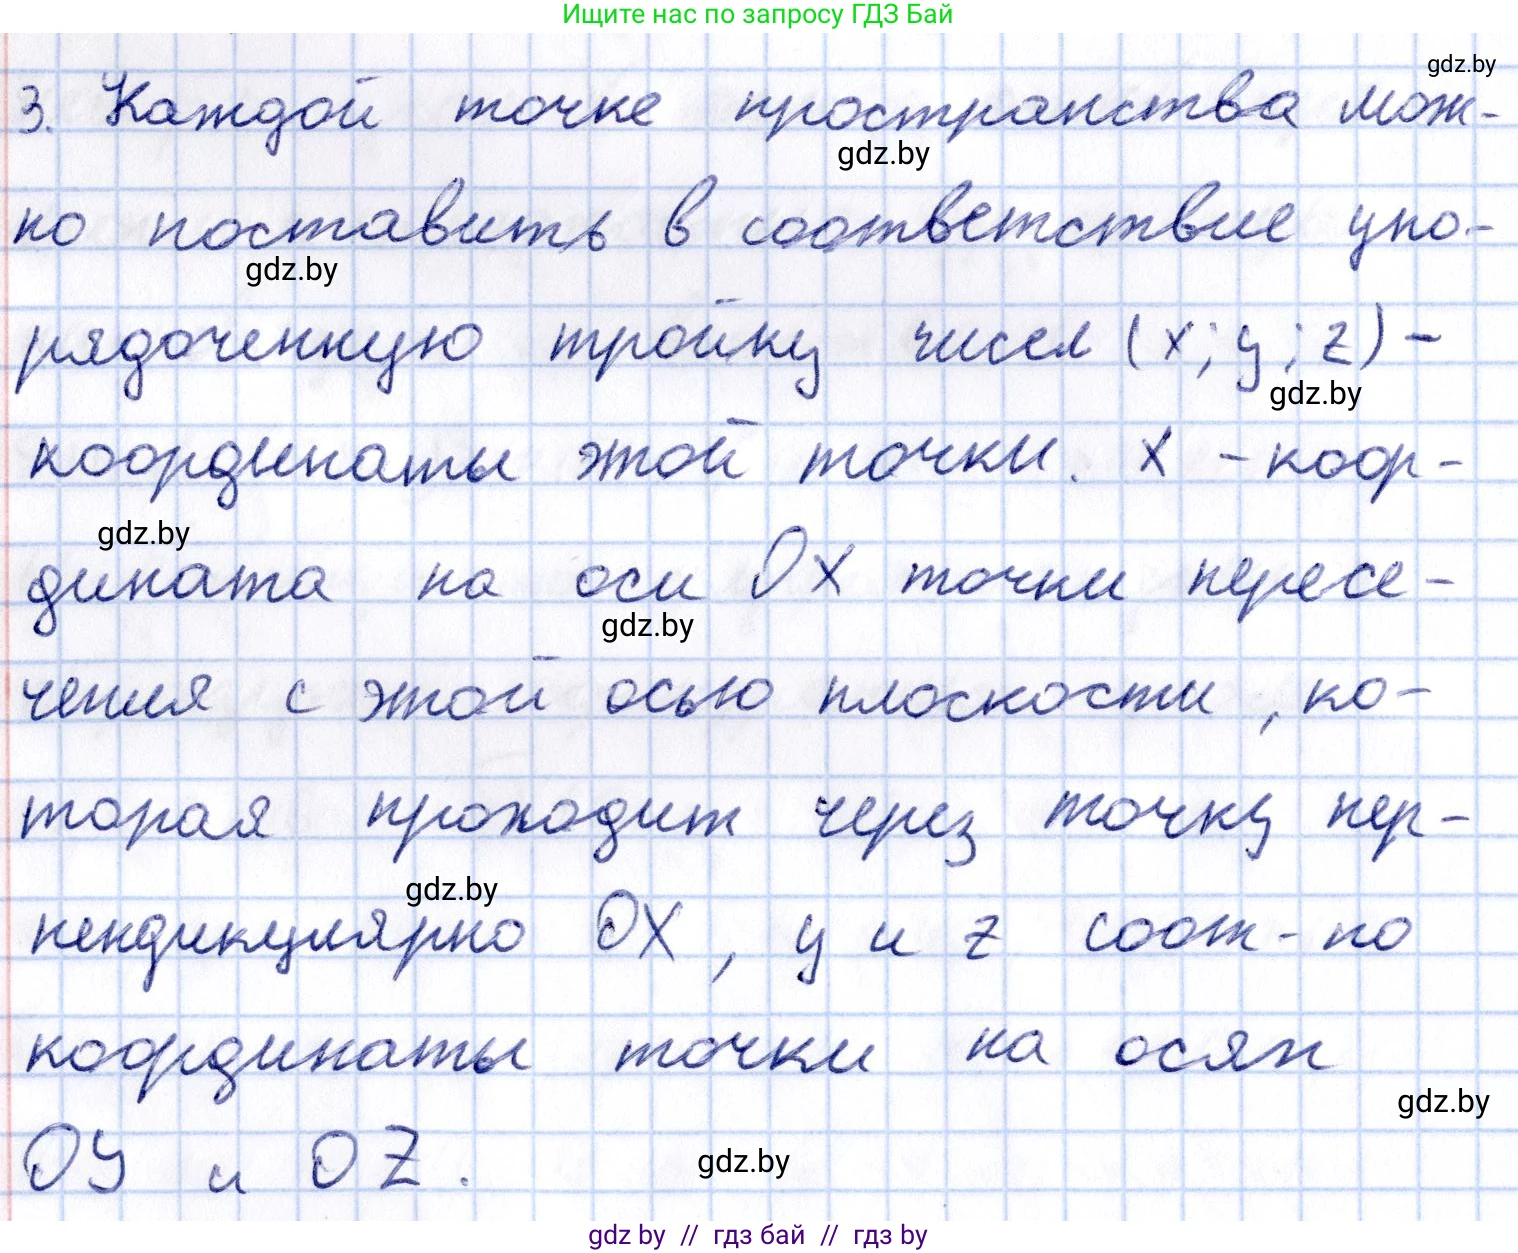 Ищите нас по запросу ГДЗ Бай
gdz.by
3. Каждой точке пространства мож-
gdz.by
но поставить в соответствие упо-
gdz.by
рядоченную тройку чисел (x; y; z) -
gdz.by
координаты этой точки. X - коор-
gdz.by
дината на оси OX точки пересе-
gdz.by
чения с этой осью плоскости, ко-
торая проходит через точку пер-
gdz.by
пендикулярно OX, y и z соотв-но
координаты точки на осях
gdz.by
OY и OZ.
gdz.by
gdz by // гдз бай // гдз by